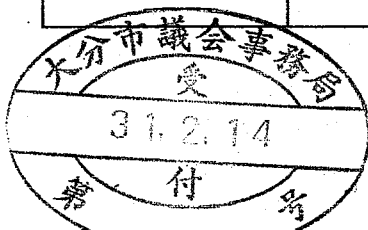 大分市議会事務局
受
31.2.14
付
第 号